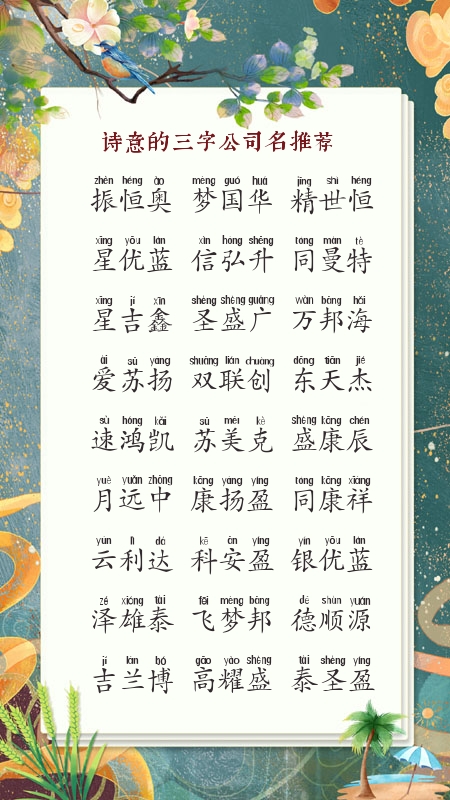 诗意的三字公司名推荐
zhèn héng ào mèng guó huá jīng shì héng
振恒奥 梦国华 精世恒
xīng yōu lán xìn hóng shēng tóng màn tè
星优蓝 信弘升 同曼特
xīng jí xīn shèng shèng guǎng wàn bāng hǎi
星吉鑫 圣盛广 万邦海
ài sū yáng shuāng lián chuàng dōng tiān jié
爱苏扬 双联创 东天杰
sù hóng kǎi sū měi kè shèng kāng chén
速鸿凯 苏美克 盛康辰
yuè yuǎn zhōng kāng yáng yíng tóng kāng xiáng
月远中 康扬盈 同康祥
yún lì dá kē ān yíng yín yōu lán
云利达 科安盈 银优蓝
zé xióng tài fēi mèng bāng dé shùn yuán
泽雄泰 飞梦邦 德顺源
jí lán bó gāo yào shèng tài shèng yíng
吉兰博 高耀盛 泰圣盈